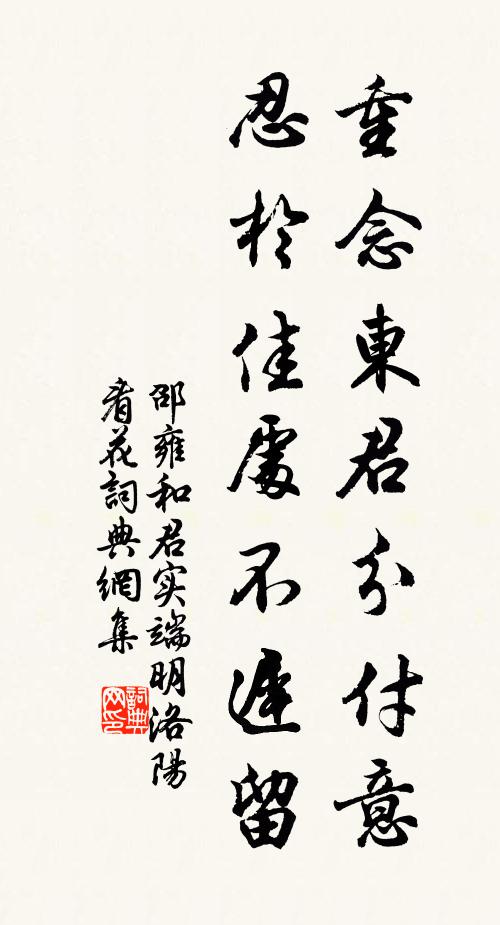 重念東君分付意
忍於佳處不遲留
邵雍和君实端明洛陽
看花詞典網集
詞典网印